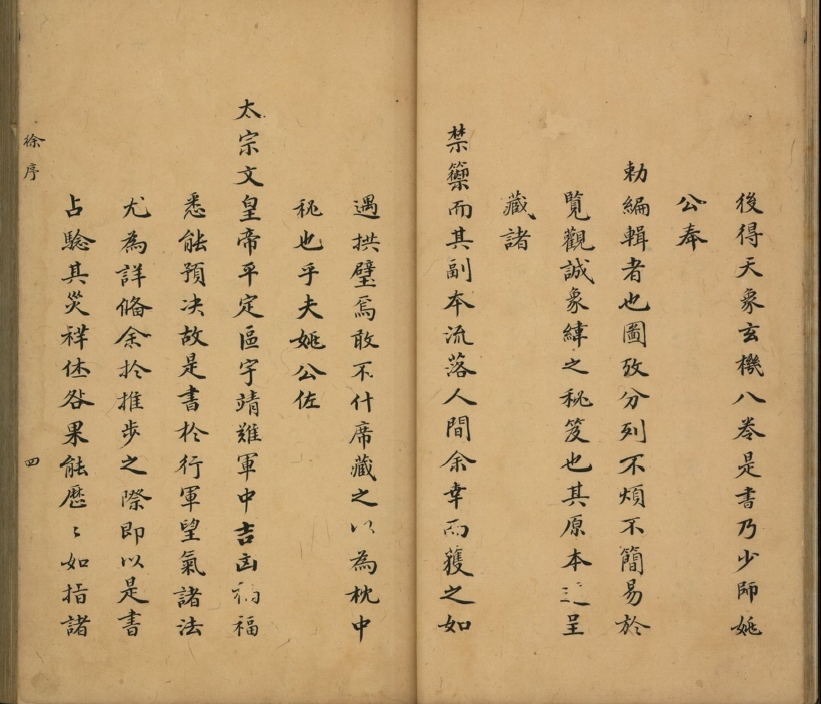 後得天象玄機八卷是書乃少師姚
公奉
勅編輯者也圖攷分列不煩不簡易於
覽觀誠象緯之秘笈也其原本進呈
藏諸
禁籞而其副本流落人間余幸而獲之如
遇拱璧焉敢不什席藏之以為枕中
秘也乎夫姚公佐
太宗文皇帝平定區宇靖難軍中吉凶禍福
悉能預决故是書於行軍望氣諸法
尤為詳俻余於推步之際即以是書
占騐其災祥休咎果能歷〻如指諸
徐序
四